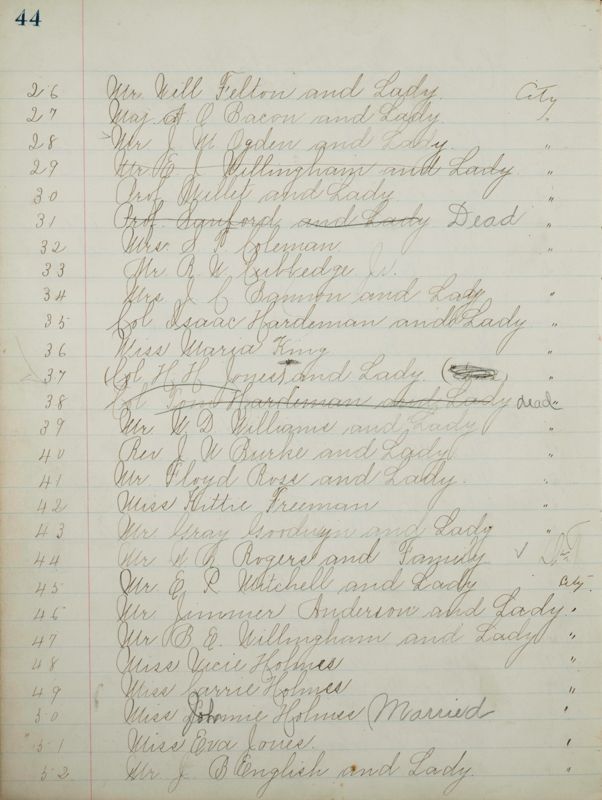 44
26 Mr. Will Felton and Lady. City
27 Maj. A O Bacon and Lady "
28 Mr J M Ogden and Lady. "
29 Mr E J Willingham and Lady. "
30 Prof. Willet and Lady "
31 Prof. Sanford and Lady Dead "
32 Mrs S Coleman "
33 Mr R W Cubbedge Jr. "
34 Mrs J C Bannon and Lady "
35 Col Isaac Hardeman and Lady "
36 Miss Maria King "
37 Col H H Jones and Lady. "
38 Col Tom Hardeman and Lady dead "
39 Mr W D Williams and Lady "
40 Rev J W Burke and Lady "
41 Mr Floyd Ross and Lady. "
42 Miss Kittie Freeman "
43 Mr Gray Goodwyn and Lady "
44 Mr Rogers and Family ✓
45 Mr. E R Mitchell and Lady City.
46 Mr Jimmer Anderson and Lady. "
47 Mr B E. Willingham and Lady "
48 Miss Vicie Holmes "
49 Miss Carrie Holmes "
50 Miss Johnnie Holmes Married "
51 Miss Eva Jones. "
52 Mr. J. B English and Lady. "